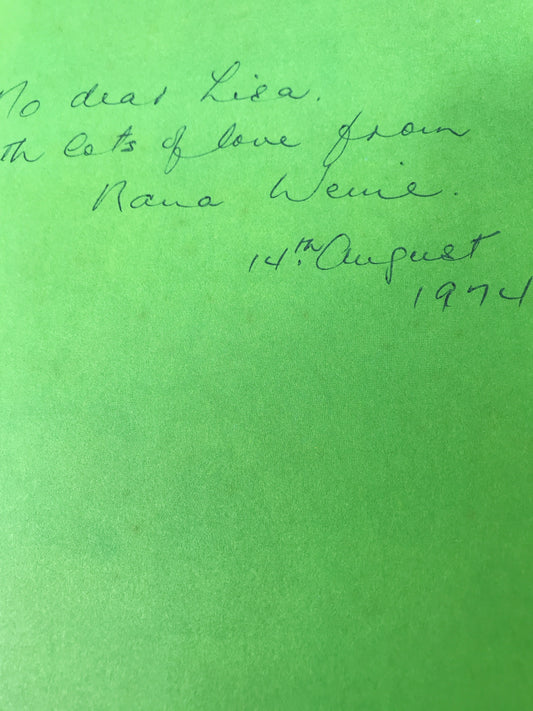 To dear Lisa.
th lots of love from
Nana Wenie.
14th. August
1974